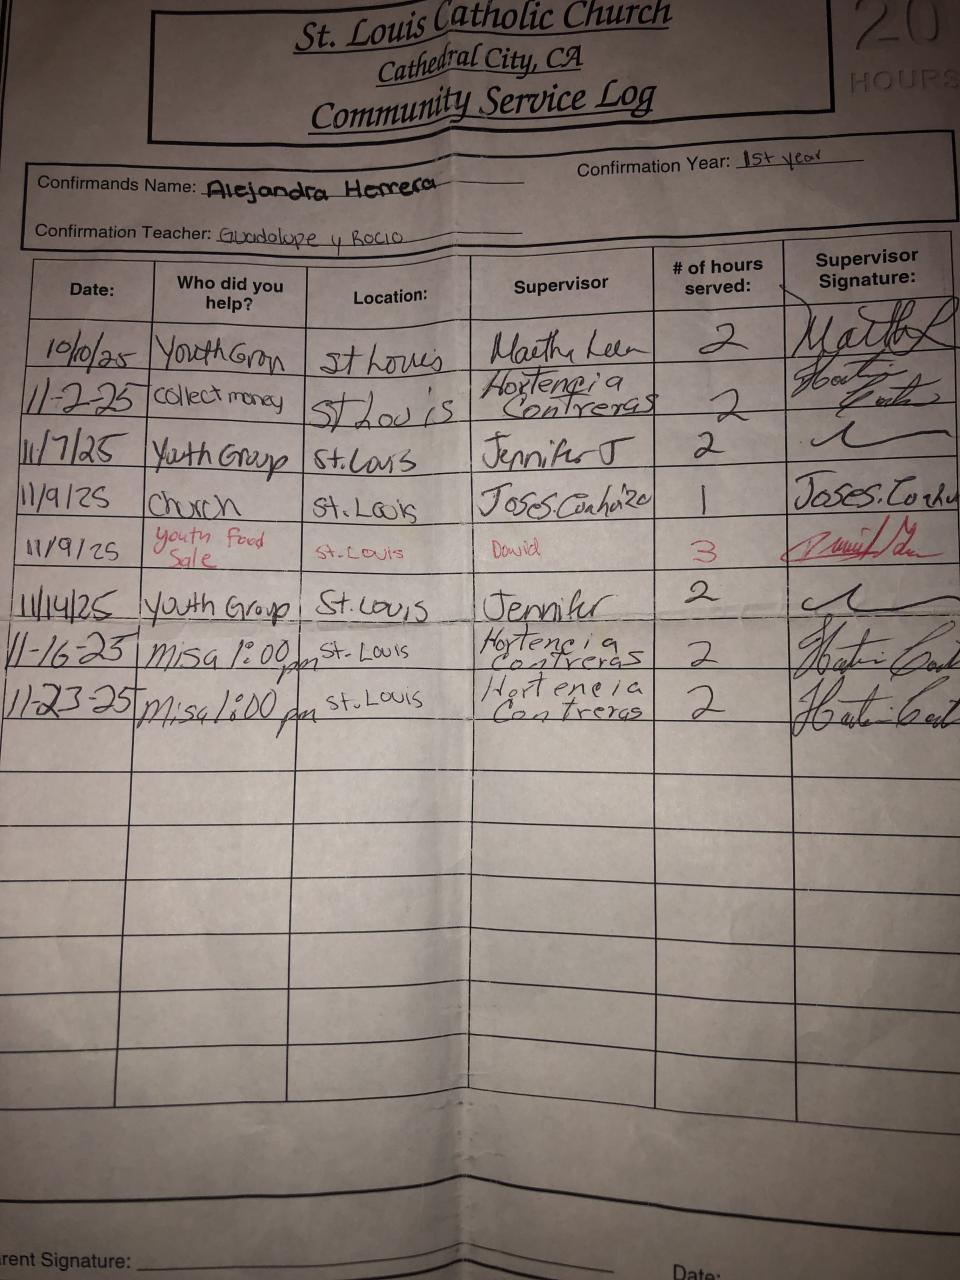 St. Louis Catholic Church
Cathedral City, CA
Community Service Log
20
HOURS
Confirmands Name: Alejandra Herrera
Confirmation Year: 1st year
Confirmation Teacher: Guadalupe y Rocio
Date: Who did you help? Location: Supervisor # of hours served: Supervisor Signature:
10/10/25 Youth Grop St Louis 2
11-2-25 collect money St Louis Hortencia Contreras 2
11/7/25 Youth Group St. Louis Jennifer J 2
11/9/25 Church St. Louis 1
11/9/25 Youth Food Sale St. Louis David 3
11/14/25 Youth Group St. Louis Jennifer 2
11-16-25 misa 1:00 pm St. Louis Hortencia Contreras 2
11-23-25 misa 1:00 pm St. Louis Hortencia Contreras 2
rent Signature:
Date: